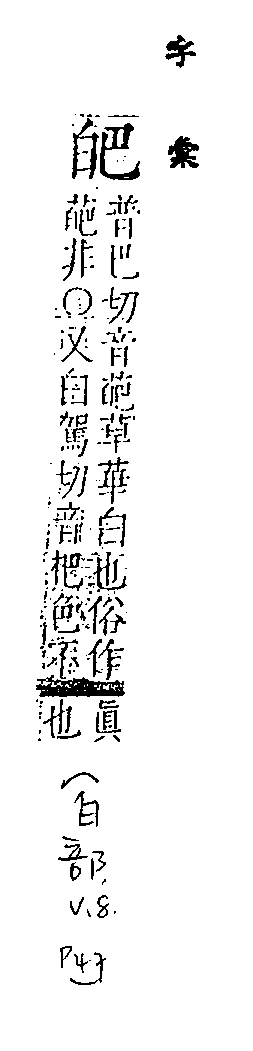 字彙
皅
普巴切音葩草華白也俗作
葩非○又白駕切音杷色不
眞
也
(白
部.
V.8.
P47)